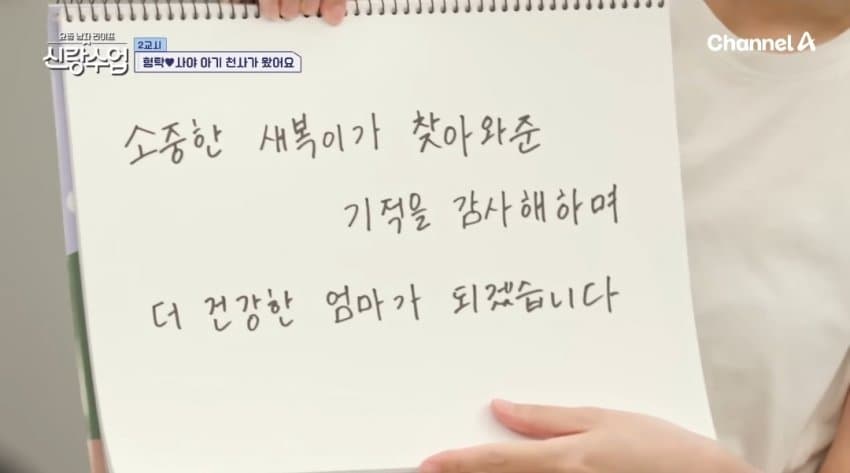 요즘 남자 라이프
신랑수업
2교시
형탁♥사야 아기 천사가 왔어요
Channel A
소중한 새복이가 찾아와준
기적을 감사해하며
더 건강한 엄마가 되겠습니다